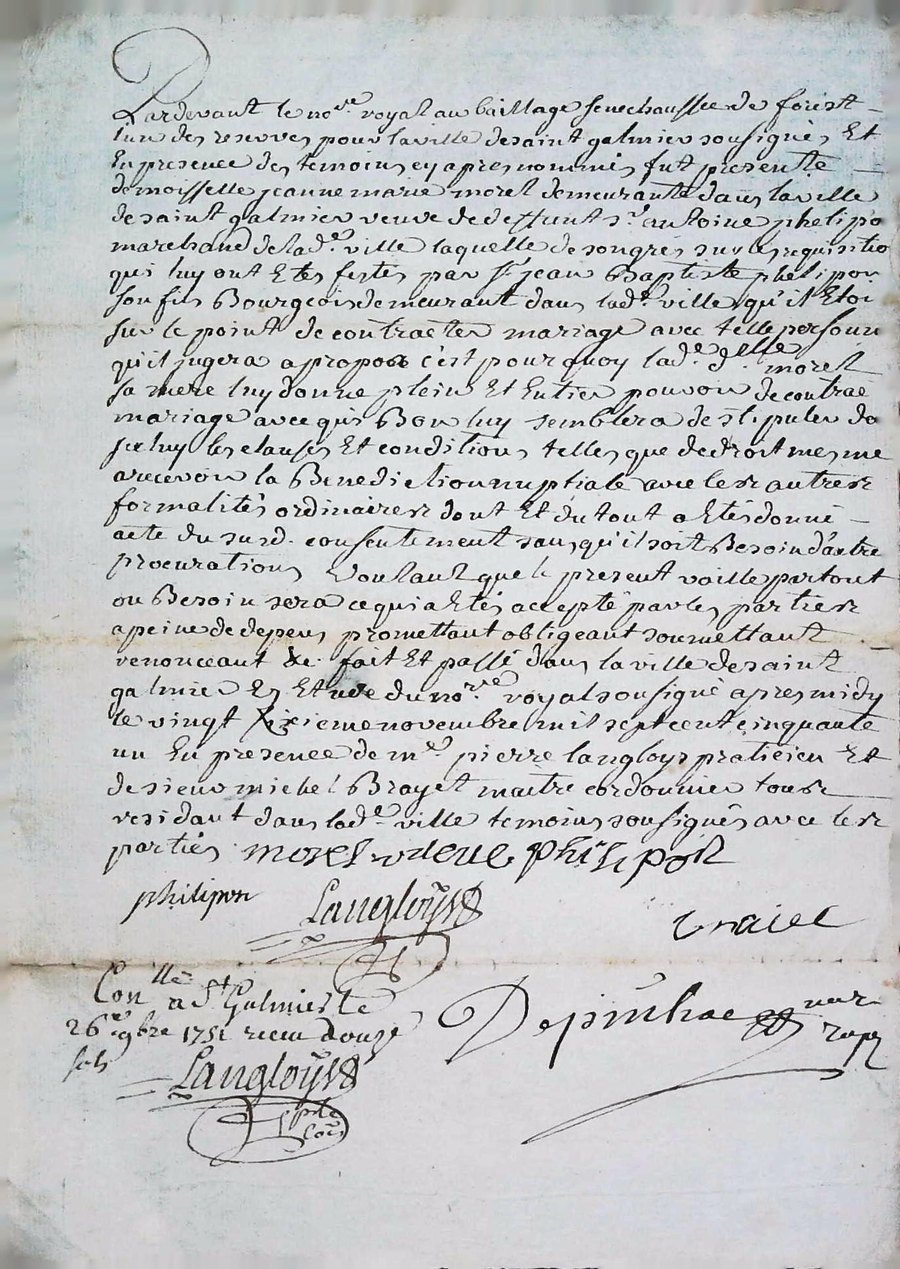 Pardevant le no.re royal au baillage senechaussée de forest
l'un des reserves pour la ville de saint galmier sousignés Et
En presence des temoins cy apres nommés fut presente
demoisselle jeanne marie morel demeurante dans la ville
de saint galmier veuve de deffunt s.r antoine phelipo
marchand de lad.e ville laquelle de songres sur les requisitio
qui luy ont Etes festes par s.r jean Baptiste phelipon
son fis Bourgeois demeurant dans lad.e ville qu'il Etoi
sur le point de contracter mariage avec telle personn
qu'il jugera a propos c'est pourquoy lad.e d.elle morel
sa mere luy donne plein Et Entier pouvoir de contrac
mariage avec qui Bon luy semblera de stipuler da
les clauses Et conditions telles que de droit mesme
a recevoir la Benediction nuptiale avec les autres
formalités ordinaires dont Et du tout a Etés donné
acte du susd. consentement sans qu'il soit Besoin d'autre
procurations voulant que le present vaille partout
ou Besoin sera ce qui a Etés accepté par les parties
a peine de depens promettant obligeant soumettant
renonceant &c. fait Et passé dans la ville de saint
galmier Es Etude du no.re royal sousigné apres midy
le vingt sixieme novembre mil sept cent cinquante
un En presence de m.e pierre langloys praticien Et
de sieur michel Brayet maitre cordonnier tous
residant dans lad.e ville temoins sousignés avec les
parties morel veuve philipon
philipon Langloys
Con.llé a S.t Galmier le
26.e 9bre 1751 receu douze
sols
Langloys